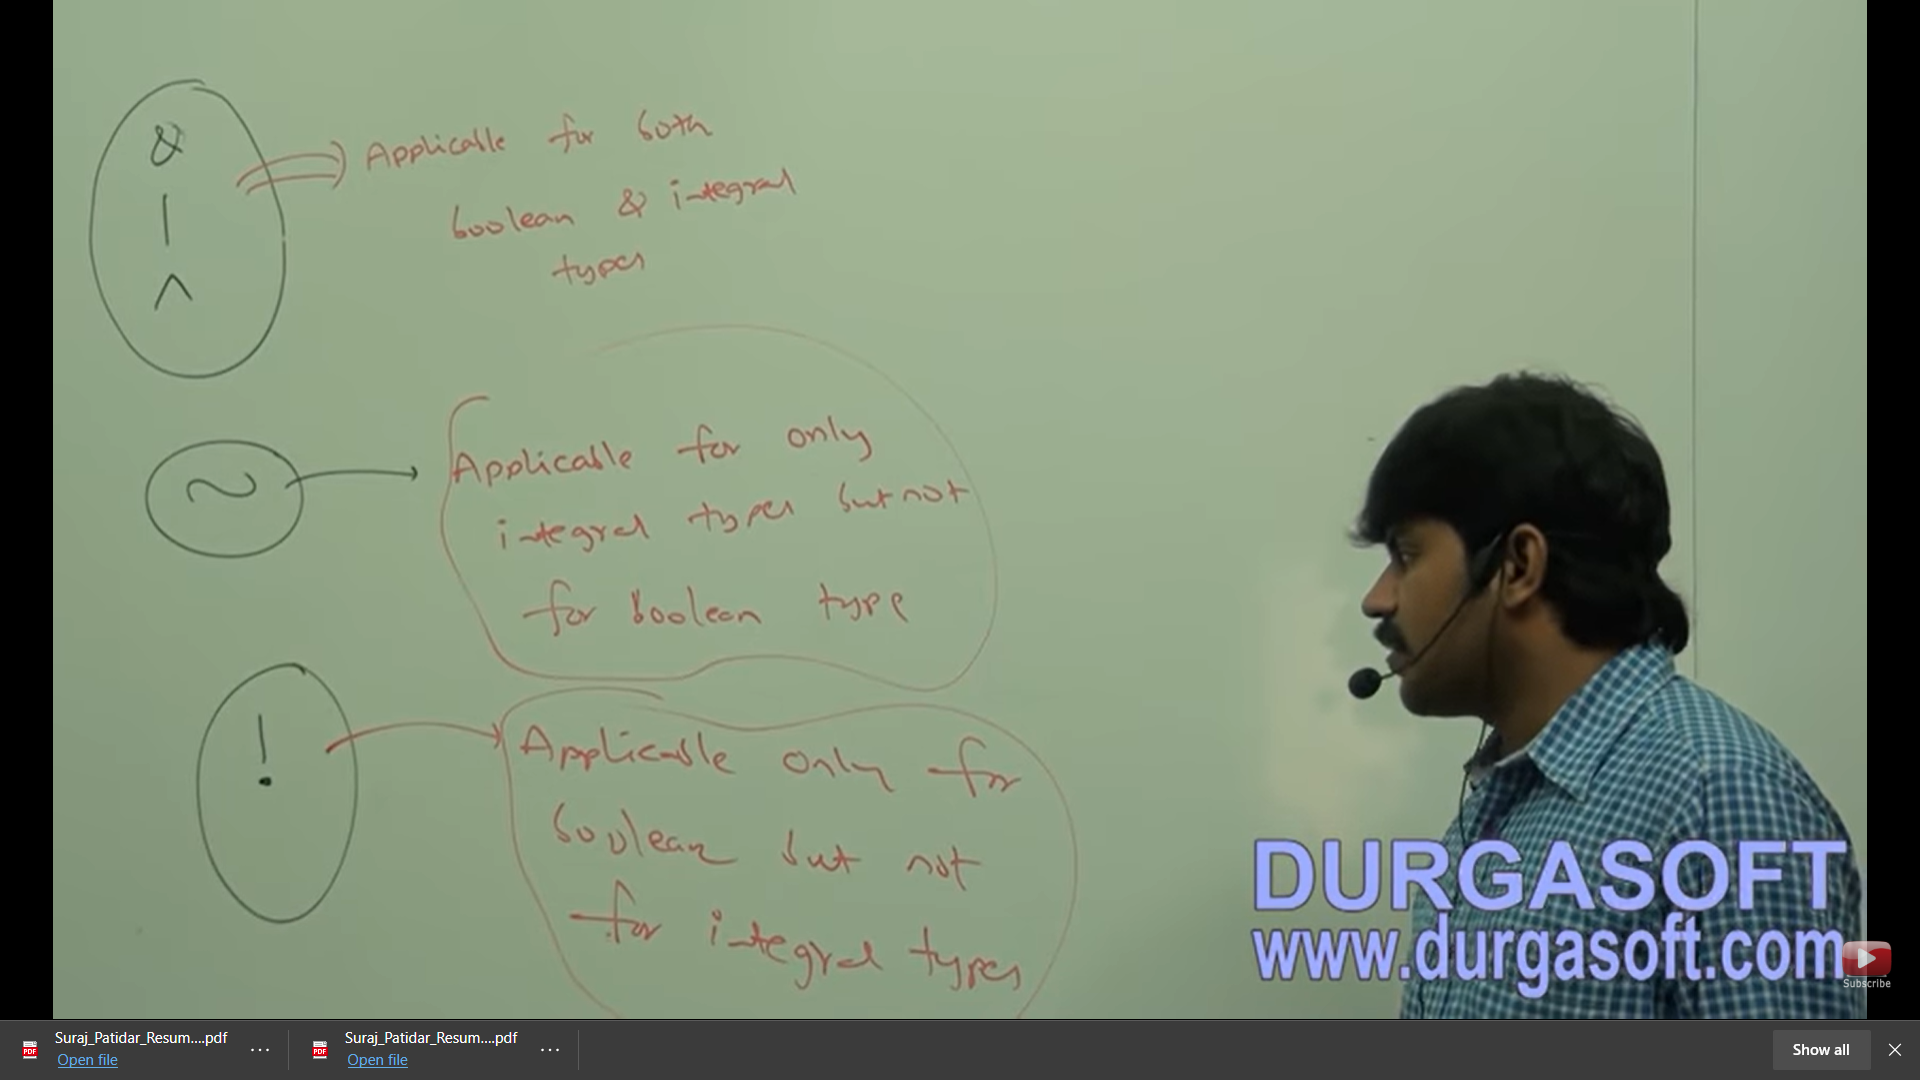 &
|
^
Applicable for both
boolean & integral
types
~
Applicable for only
integral types but not
for boolean type
!
Applicable only for
boolean but not
for integral types
DURGASOFT
www.durgasoft.com
Subscribe
Suraj_Patidar_Resum....pdf
Open file
Suraj_Patidar_Resum....pdf
Open file
Show all